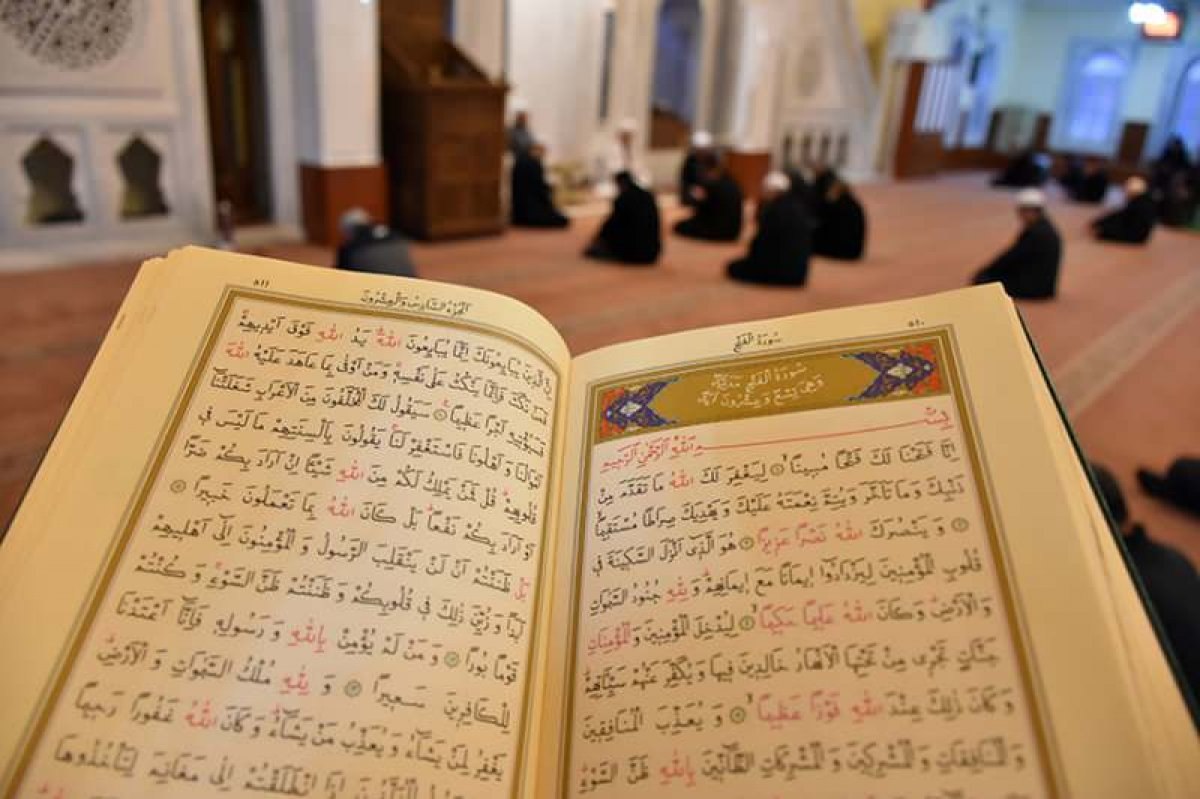 سُورَةُ الْفَتْحِ ٥١٠
سُورَةُ الْفَتْحِ مَدَنِيَّةٌ
وَهِيَ تِسْعٌ وَعِشْرُونَ اٰيَةً
بِسْمِ اللّٰهِ الرَّحْمٰنِ الرَّحِيمِ
اِنَّا فَتَحْنَا لَكَ فَتْحًا مُبِينًاۙ ١ لِيَغْفِرَ لَكَ اللّٰهُ مَا تَقَدَّمَ مِنْ
ذَنْبِكَ وَمَا تَأَخَّرَ وَيُتِمَّ نِعْمَتَهُ عَلَيْكَ وَيَهْدِيَكَ صِرَاطًا مُسْتَقِيمًاۙ
٢ وَيَنْصُرَكَ اللّٰهُ نَصْرًا عَزِيزًا ٣ هُوَ الَّذِي اَنْزَلَ السَّكِينَةَ فِي
قُلُوبِ الْمُؤْمِنِينَ لِيَزْدَادُوا اِيمَانًا مَعَ اِيمَانِهِمْۜ وَلِلّٰهِ جُنُودُ السَّمٰوَاتِ
وَالْاَرْضِۜ وَكَانَ اللّٰهُ عَلِيمًا حَكِيمًاۙ ٤ لِيُدْخِلَ الْمُؤْمِنِينَ وَالْمُؤْمِنَاتِ
جَنَّاتٍ تَجْرِي مِنْ تَحْتِهَا الْاَنْهَارُ خَالِدِينَ فِيهَا وَيُكَفِّرَ عَنْهُمْ سَيِّـَٔاتِهِمْۜ
وَكَانَ ذٰلِكَ عِنْدَ اللّٰهِ فَوْزًا عَظِيمًاۙ ٥ وَيُعَذِّبَ الْمُنَافِقِينَ
وَالْمُنَافِقَاتِ وَالْمُشْرِكِينَ وَالْمُشْرِكَاتِ الظَّانِّينَ بِاللّٰهِ ظَنَّ السَّوْءِۜ
اَلْجُزْءُ السَّادِسُ وَالْعِشْرُونَ ٥١١
اِنَّ الَّذِينَ يُبَايِعُونَكَ اِنَّمَا يُبَايِعُونَ اللّٰهَۜ يَدُ اللّٰهِ فَوْقَ اَيْدِيهِمْۚ
فَمَنْ نَكَثَ فَاِنَّمَا يَنْكُثُ عَلٰى نَفْسِهِۚ وَمَنْ اَوْفٰى بِمَا عَاهَدَ عَلَيْهُ اللّٰهَ
فَسَيُؤْتِيهِ اَجْرًا عَظِيمًا ١٠ سَيَقُولُ لَكَ الْمُخَلَّفُونَ مِنَ الْاَعْرَابِ شَغَلَتْنَٓا
اَمْوَالُنَا وَاَهْلُونَا فَاسْتَغْفِرْ لَنَاۚ يَقُولُونَ بِاَلْسِنَتِهِمْ مَا لَيْسَ فِي
قُلُوبِهِمْۜ قُلْ فَمَنْ يَمْلِكُ لَكُمْ مِنَ اللّٰهِ شَيْـًٔا اِنْ اَرَادَ بِكُمْ ضَرًّا
اَوْ اَرَادَ بِكُمْ نَفْعًاۜ بَلْ كَانَ اللّٰهُ بِمَا تَعْمَلُونَ خَبِيرًا ١١
بَلْ ظَنَنْتُمْ اَنْ لَنْ يَنْقَلِبَ الرَّسُولُ وَالْمُؤْمِنُونَ اِلٰٓى اَهْلِيهِمْ
اَبَدًا وَزُيِّنَ ذٰلِكَ فِي قُلُوبِكُمْ وَظَنَنْتُمْ ظَنَّ السَّوْءِۚ وَكُنْتُمْ
قَوْمًا بُورًا ١٢ وَمَنْ لَمْ يُؤْمِنْ بِاللّٰهِ وَرَسُولِهِ فَاِنَّٓا اَعْتَدْنَا
لِلْكَافِرِينَ سَعِيرًا ١٣ وَلِلّٰهِ مُلْكُ السَّمٰوَاتِ وَالْاَرْضِۜ
يَغْفِرُ لِمَنْ يَشَٓاءُ وَيُعَذِّبُ مَنْ يَشَٓاءُۜ وَكَانَ اللّٰهُ غَفُورًا رَحِيمًا
اِذَا انْطَلَقْتُمْ اِلٰى مَغَانِمَ لِتَأْخُذُوهَا